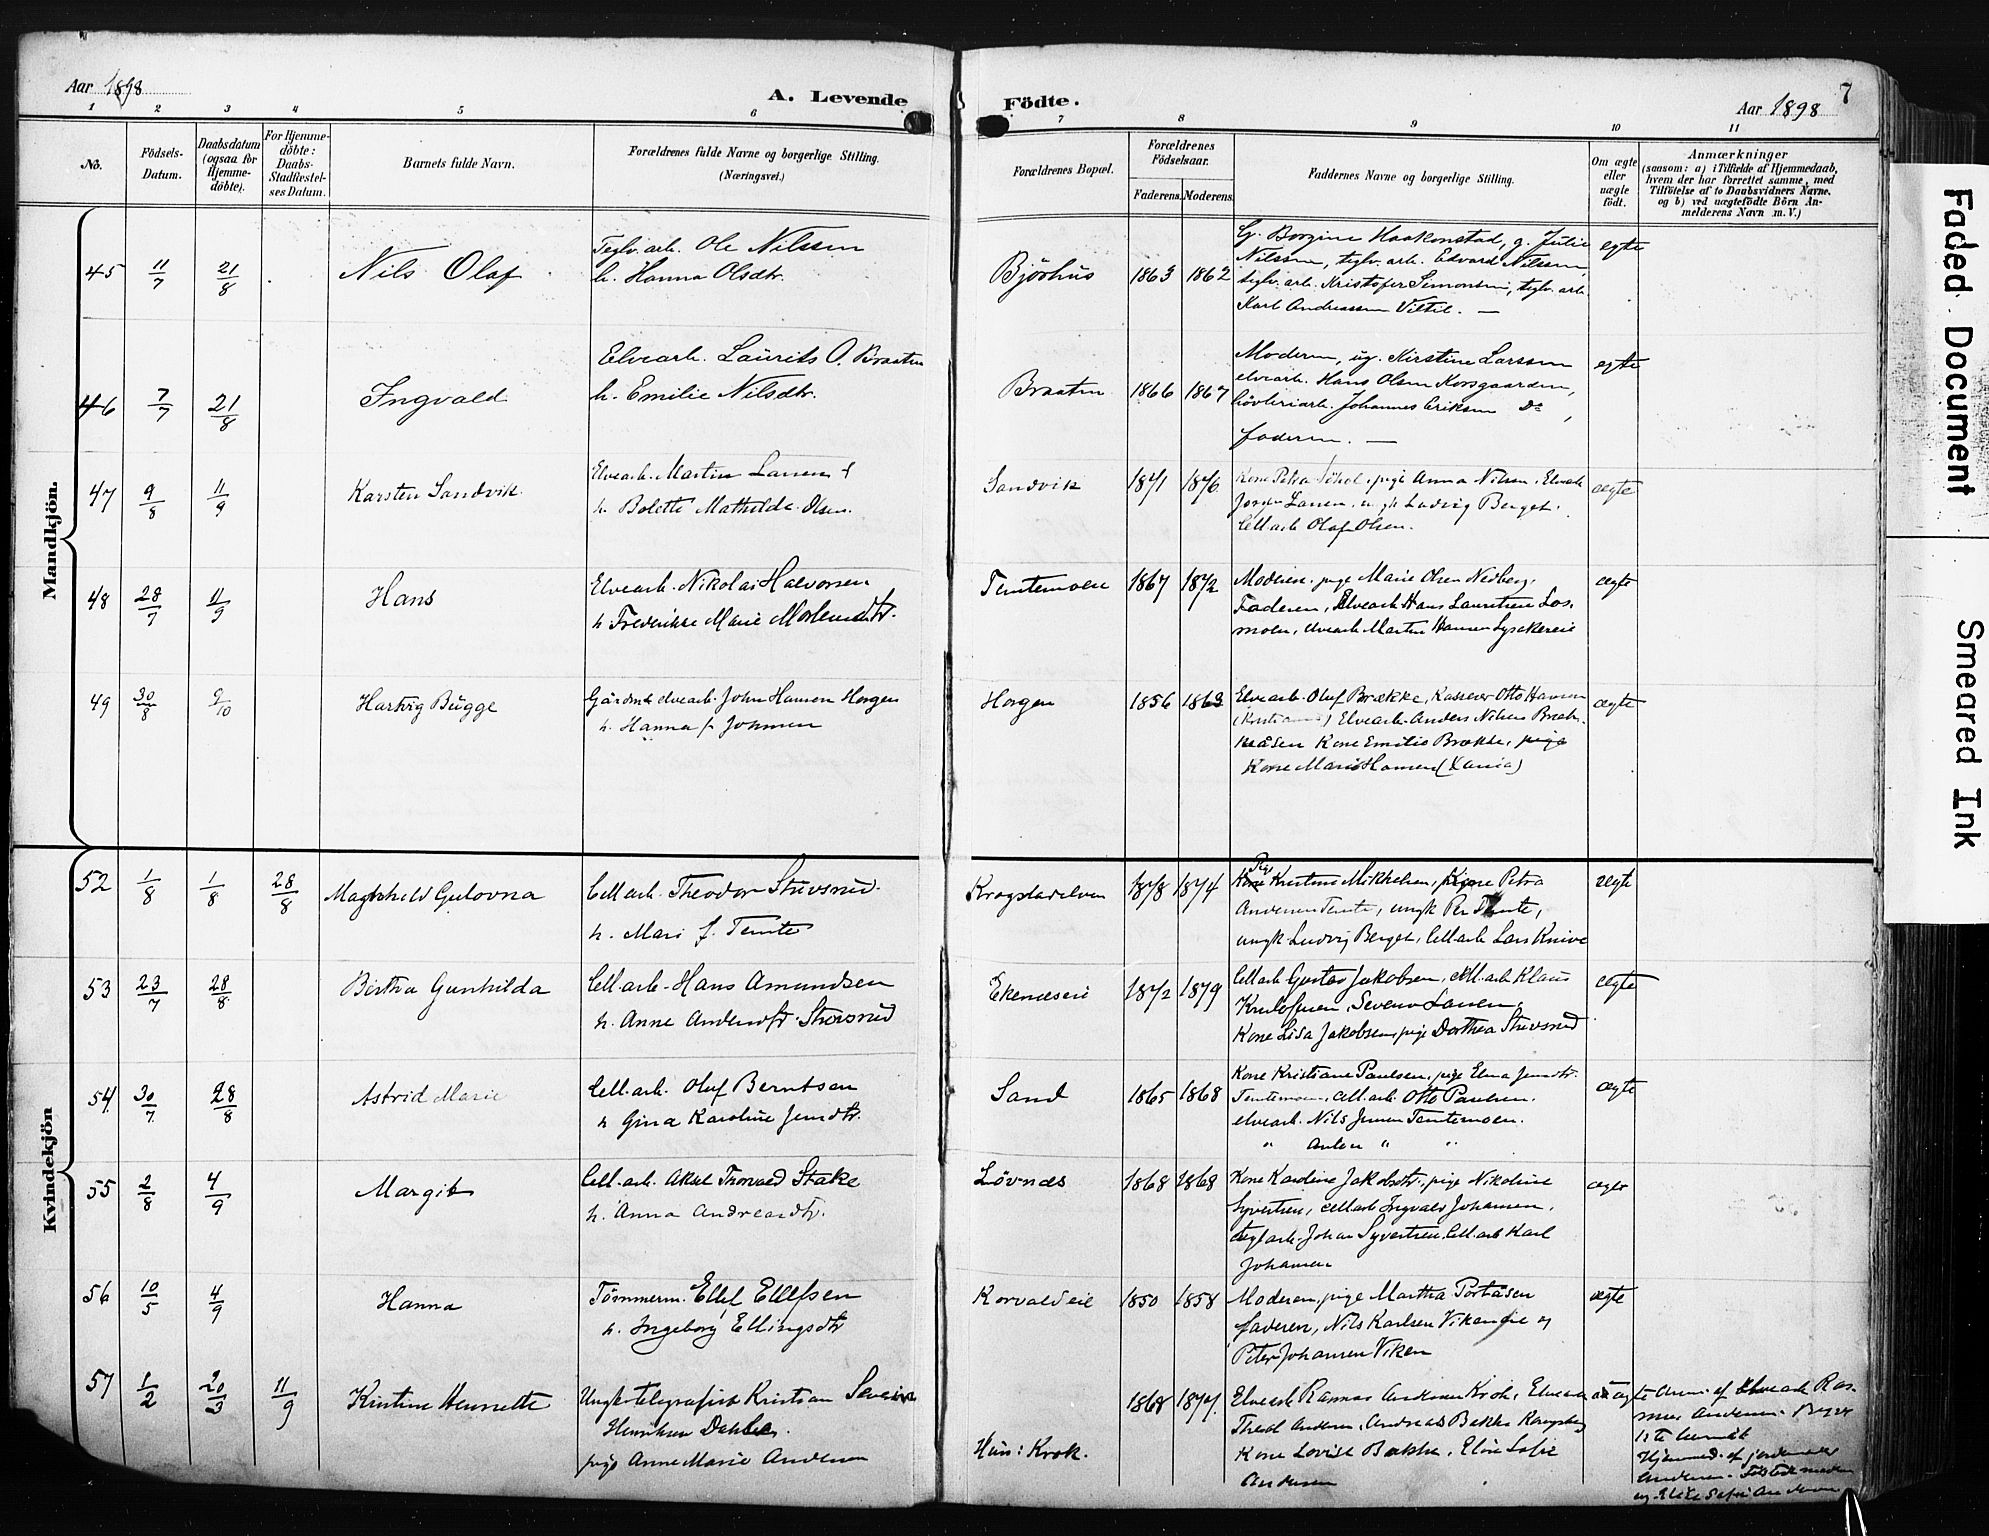 Aar 1898
A. Levende
Födte.
Aar 1898
7
1 2 3 4 5 6 7 8 9 10 11
No.
Födsels-
Datum.
Daabsdatum
(ogsaa for
Hjemme-
döbte).
For Hjemme-
döbte:
Daabs-
Stadfæstel-
ses Datum.
Barnets fulde Navn.
Forældrenes fulde Navne og borgerlige Stilling.
(Næringsvei.)
Forældrenes Bopæl.
Forældrenes
Födselsaar.
Faderens. Moderens.
Faddernes Navne og borgerlige Stilling.
Om ægte
eller
uægte
födt.
Anmærkninger
(saasom: a) i Tilfælde af Hjemmedaab,
hvem der har forrettet samme, med
Tilföielse af to Daabsvidners Navne,
og b) ved uægtefödte Börn An-
melderens Navn m. V.)
Mandkjön.
45 11/7 21/8 Nils Olaf
Teglv. arb. Ole Nilssen
h. Hanna Olsdtr.
Bjørhus 1863 1862
G. Borgine Haakonstad, g. Julie
Nilssen, teglv. arb. Edvard Nilssen,
teglv. arb. Kristofer Simonsen, teglv. arb.
Karl Andreassen Viltil. —
egte
46 7/7 21/8 Ingvald
Elvearb. Laurits O. Braaten
h. Emilie Nilsdtr.
Braaten 1866 1867
Moderen, ug. Kirstine Larssen
elvearb. Hans Olsen Korsgaarden,
høvleriarb. Johannes Eriksen Do,
faderen. —
egte
47 9/8 11/9 Karsten Sandvik
Elvearb. Martin Larsen
h. Bolette Mathilde Olsen.
Sandvik 1871 1876
Kone Petra, pige Anna Nilsen, Elvearb
Larsen, Ludvig Berget,
Cell arb Olaf Olsen.
ægte
48 28/7 11/9 Hans
Elvearb. Nikolai Halvorsen
h. Frederikke Marie Mortensdtr.
Temtemoen 1867 1872
Moderen, pige Marie Olsen Nedberg,
Faderen, Elvearb Hans Lauritsen Los-
moen, elvearb Martin Hansen
ægte
49 30/8 9/10 Hartvig Bugge
Gårdm & elvearb. John Hansen Horgen
h. Hanna f. Johnsen
Horgen 1856 1863
Elvearb. Oluf Brække, Kasserer Otto Hansen
Elvearb. Anders Nilsen
Kone Emilie Brække, pige
Kone Marie Hansen (Xania)
ægte
Kvindekjön
52 1/8 1/8 28/8 Magnhild Gulovna
Cell arb. Theodor Stuvsrud.
h. Mari f. Temte
Krogstadelven 1878 1874
Pige
Kone Kristine Mikkelsen, Kone Petra
Andersen Temte, ungk Per Temte,
ungk Ludvig Berget, Cell arb Lars Knive
ægte
53 23/7 28/8 Birtha Gunhilda
Cell. arb. Hans Amundsen
h. Anne Andersdtr. Stuvsrud
Ekenæseie 1872 1879
Cell arb Gustav Jakobsen, cell. arb Klaus
Kristoffersen, Severin Larsen,
Kone Lisa Jakobsen, pige Dorthea Stuvsrud
ægte
54. 30/7 28/8 Astrid Marie
Cell. arb. Oluf Berntsen
h. Gina Karoline Jensdtr.
Sand 1865 1868
Kone Kristiane Paulsen, pige Elna Jensdtr.
Temtemoen, cell arb. Otto Paulsen,
elvearb. Nils Jensen Temtemoen.
" Anton " "
ægte
55 2/8 4/9 Margit
Cell. arb. Aksel Thorvald Stake
h. Anna Andreasdtr.
Løvnæs 1868 1868
Kone Karoline Jakobsdtr., pige Nikoline
Syvertsen, cell arb Ingvald Johansen,
teglarb. Johan Syvertsen, Cell. arb Karl
Johansen
ægte
56 10/5 4/9 Hanna
Tömmerm. Ellef Ellefsen
h. Ingeborg Ellingsdtr
Korvaldseie 1850 1858
Moderen, pige Martha Portåsen
faderen, Nils Karlsen Viken og
Peter Johansen Viken
ægte
57 1/2 20/3 11/9 Kristine Henriette
Ungk. telegrafist Kristian Severin
Henriksen Dahle.
pige Anne Marie Andersen
Hun: Krok. 1868 1877.
Elvearb Rasmus Andersen Krok, Elvearb
Theod. Andersen, Andreas Bakke Kongsberg
Kone Lovise Bakke, Eline Sofie
Andersen
uægte
Anm. af Elvearb Ras-
mus Andersen.
Hjemmed. af jordemoder
Andersen. Tilstede moderen
og Eline Sofie Andersen
Faded Document
Smeared Ink